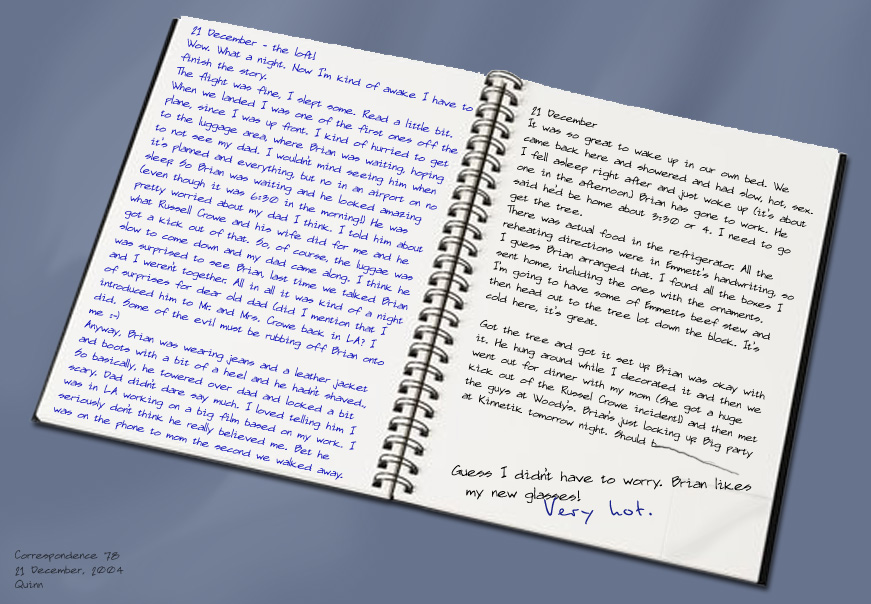 21 December - the loft!
Wow. What a night. Now I'm kind of awake I have to
finish the story.
The flight was fine, I slept some. Read a little bit.
When we landed I was one of the first ones off the
plane, since I was up front. I kind of hurried to get
to the luggage area, where Brian was waiting, hoping
to not see my dad. I wouldn't mind seeing him when
it's planned and everything, but no in an airport on no
sleep. So Brian was waiting and he looked amazing
(even though it was 6:30 in the morning!) He was
pretty worried about my dad I think. I told him about
what Russell Crowe and his wife did for me and he
got a kick out of that. So, of course, the luggae was
slow to come down and my dad came along. I think he
was surprised to see Brian, last time we talked Brian
and I weren't together. All in all it was kind of a night
of surprises for dear old dad (did I mention that I
introduced him to Mr. and Mrs. Crowe back in LA? I
did. Some of the evil must be rubbing off Brian onto
me :-)
Anyway, Brian was wearing jeans and a leather jacket
and boots with a bit of a heel and he hadn't shaved.,
So basically, he towered over dad and looked a bit
scary. Dad didn't dare say much. I loved telling him I
was in LA working on a big film based on my work. I
seriously don't think he really believed me. Bet he
was on the phone to mom the second we walked away.
21 December
It was so great to wake up in our own bed. We
came back here and showered and had slow, hot, sex.
I fell asleep right after and just woke up (it's about
one in the afternoon.) Brian has gone to work. He
said he'd be home about 3:30 or 4. I need to go
get the tree.
There was actual food in the refrigerator. All the
reheating directions were in Emmett's handwriting, so
I guess Brian arranged that. I found all the boxes I
sent home, including the ones with the ornaments.
I'm going to have some of Emmetts beef stew and
then head out to the tree lot down the block. It's
cold here, it's great.
Got the tree and got it set up Brian was okay with
it. He hung around while I decorated it and then we
went out for dinner with my mom (She got a huge
kick out of the Russel Crowe incident!) and then met
the guys at Woody's. Brian's just locking up Big party
at Kinnetik tomorrow night. Should b
Guess I didn't have to worry. Brian likes
my new glasses!
Very hot.
Correspondence 78
21 December, 2004
Quinn